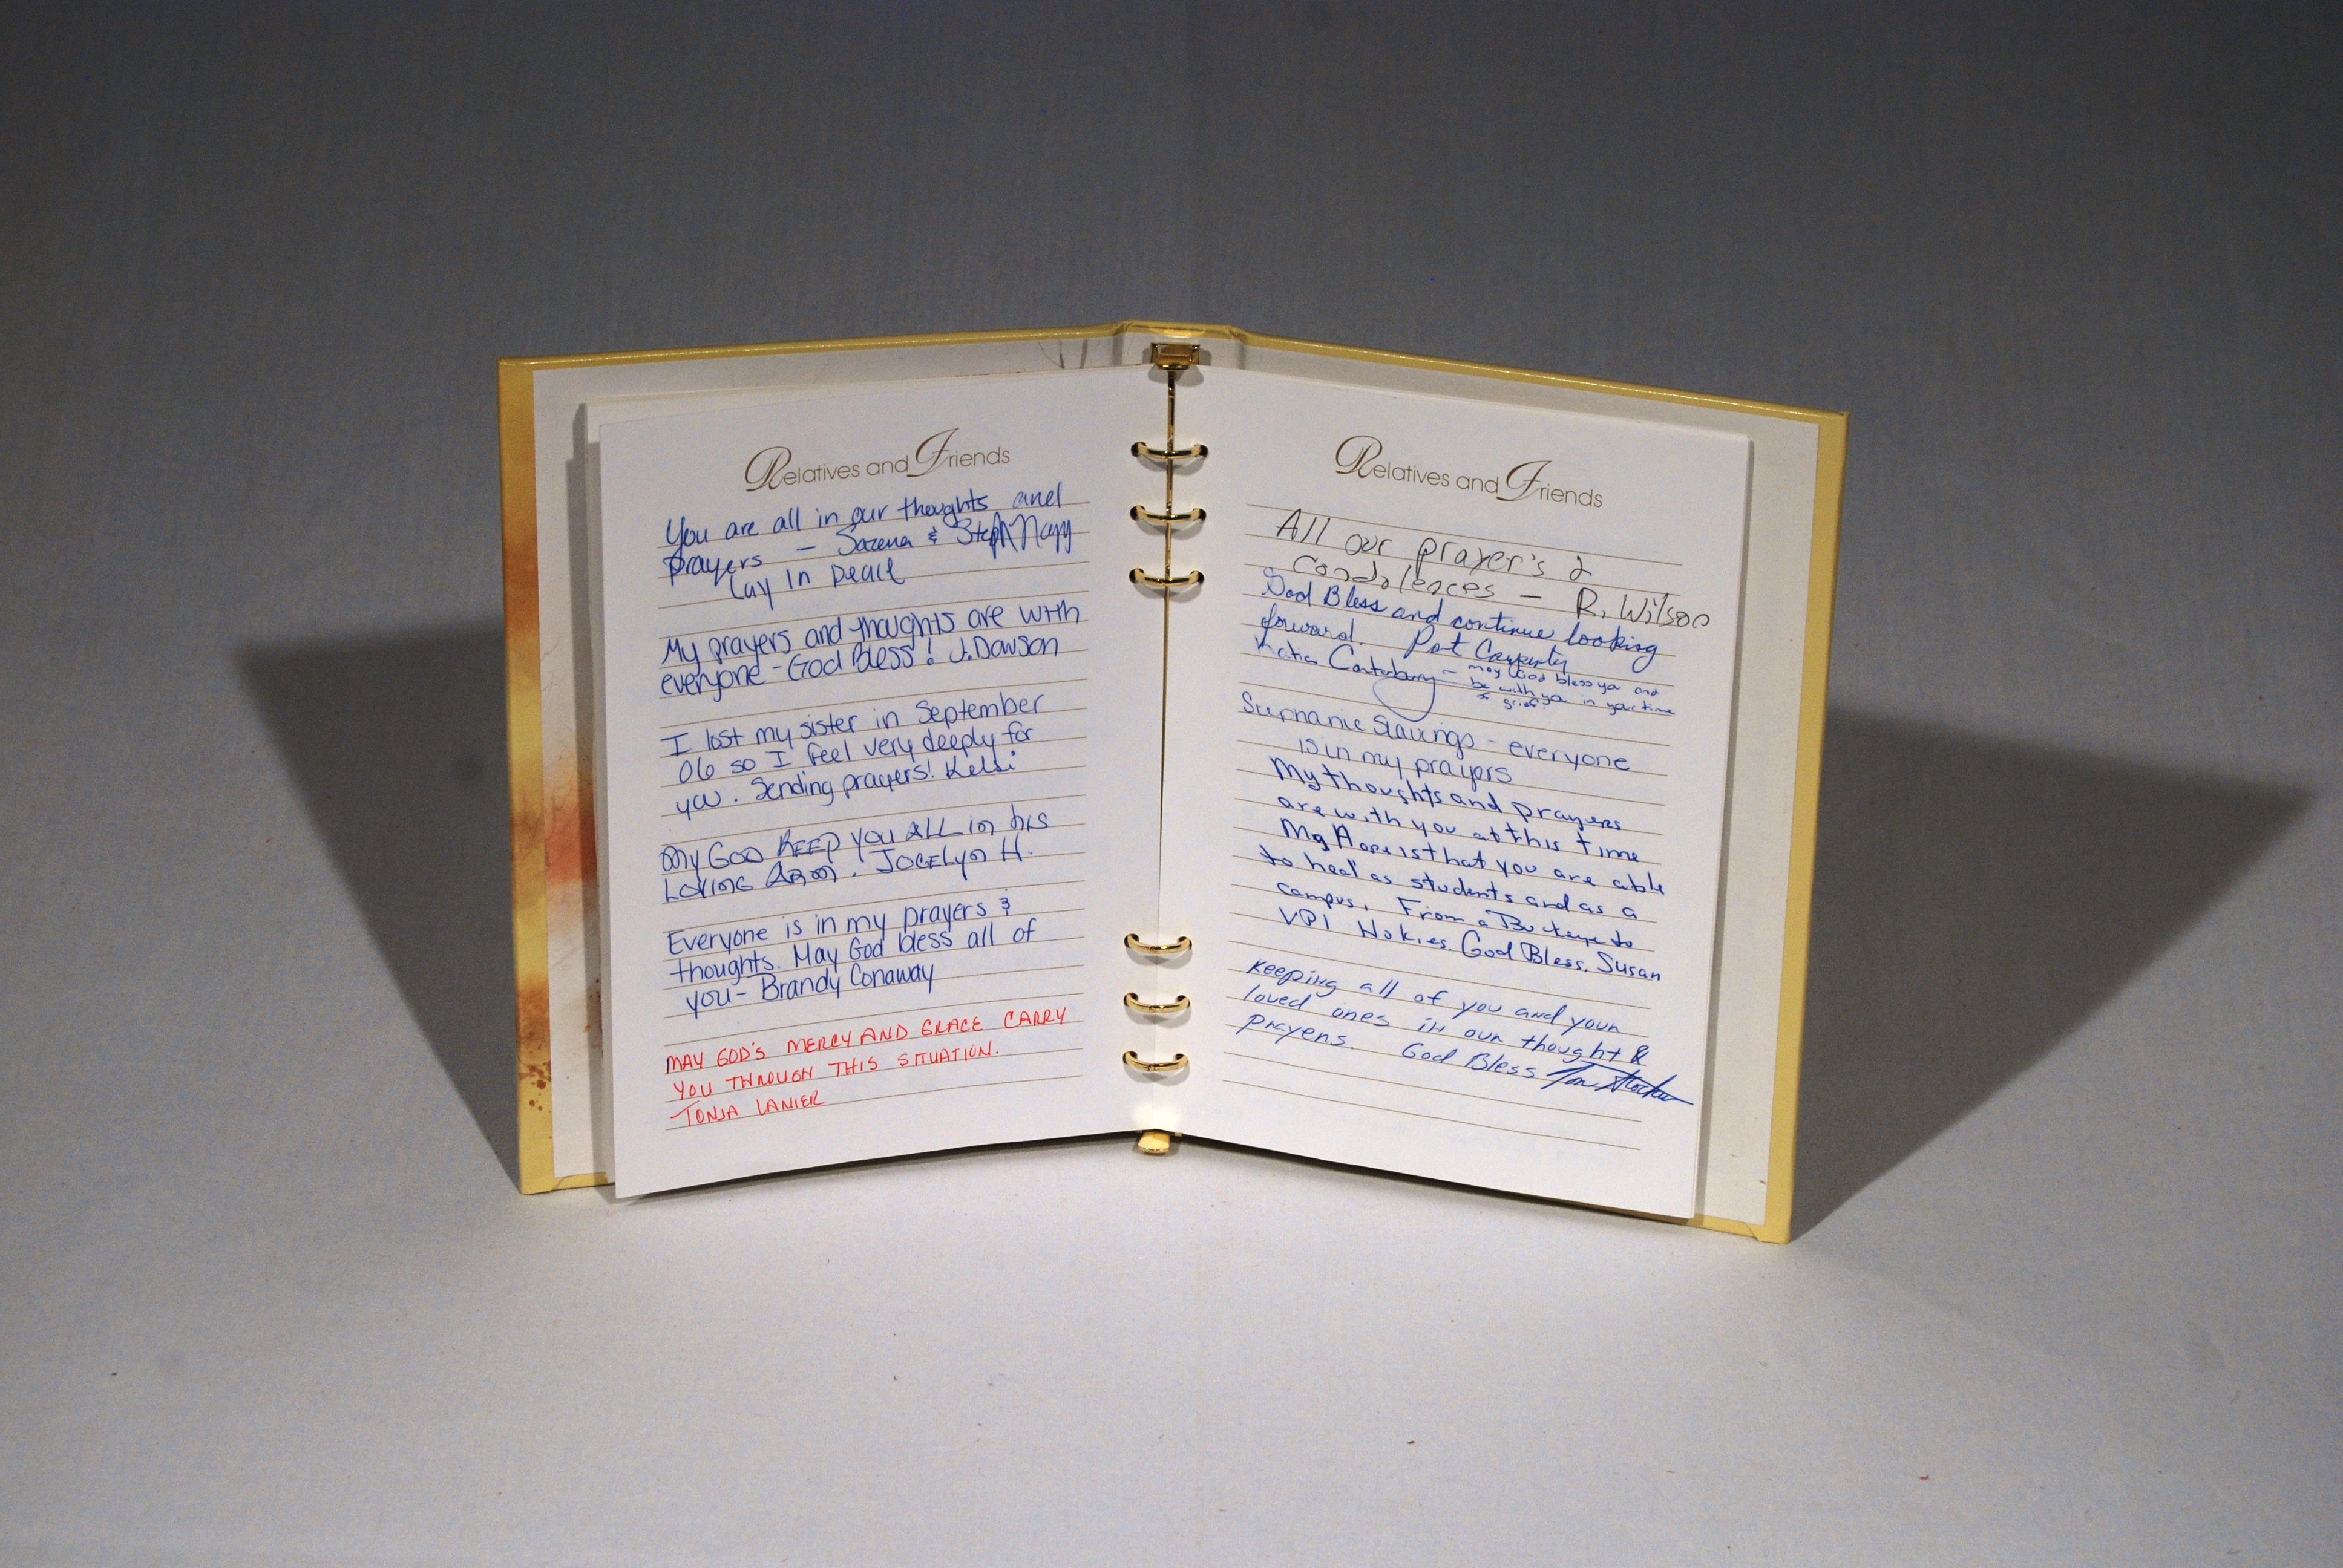 Relatives and Friends
You are all in our thoughts and
prayers — Sarena & Steph Nagy
Lay in Peace
My prayers and thoughts are with
everyone - God Bless! J. Dawson
I lost my sister in September
06 so I feel very deeply for
you. Sending prayers! Kelsi
My GOD KEEP YOU ALL in his
LOVING ARM. JOCELYN H.
Everyone is in my prayers &
thoughts. May God bless all of
you- Brandy Conaway
MAY GOD'S MERCY AND GRACE CARRY
YOU THROUGH THIS SITUATION.
TONJA LANIER
Relatives and Friends
All our prayer's &
Condolences — R. Wilson
God Bless and continue looking
forward. Pat Carpenter
Katie Canterbury — may God bless you and
be with you in your time
of grief.
Stephanie Slavings - everyone
is in my prayers
My thoughts and prayers
are with you at this time
My Hope is that you are able
to heal as students and as a
campus. From a Buckeye to
VPI Hokies. God Bless. Susan
Keeping all of you and your
loved ones in our thought &
prayers. God Bless